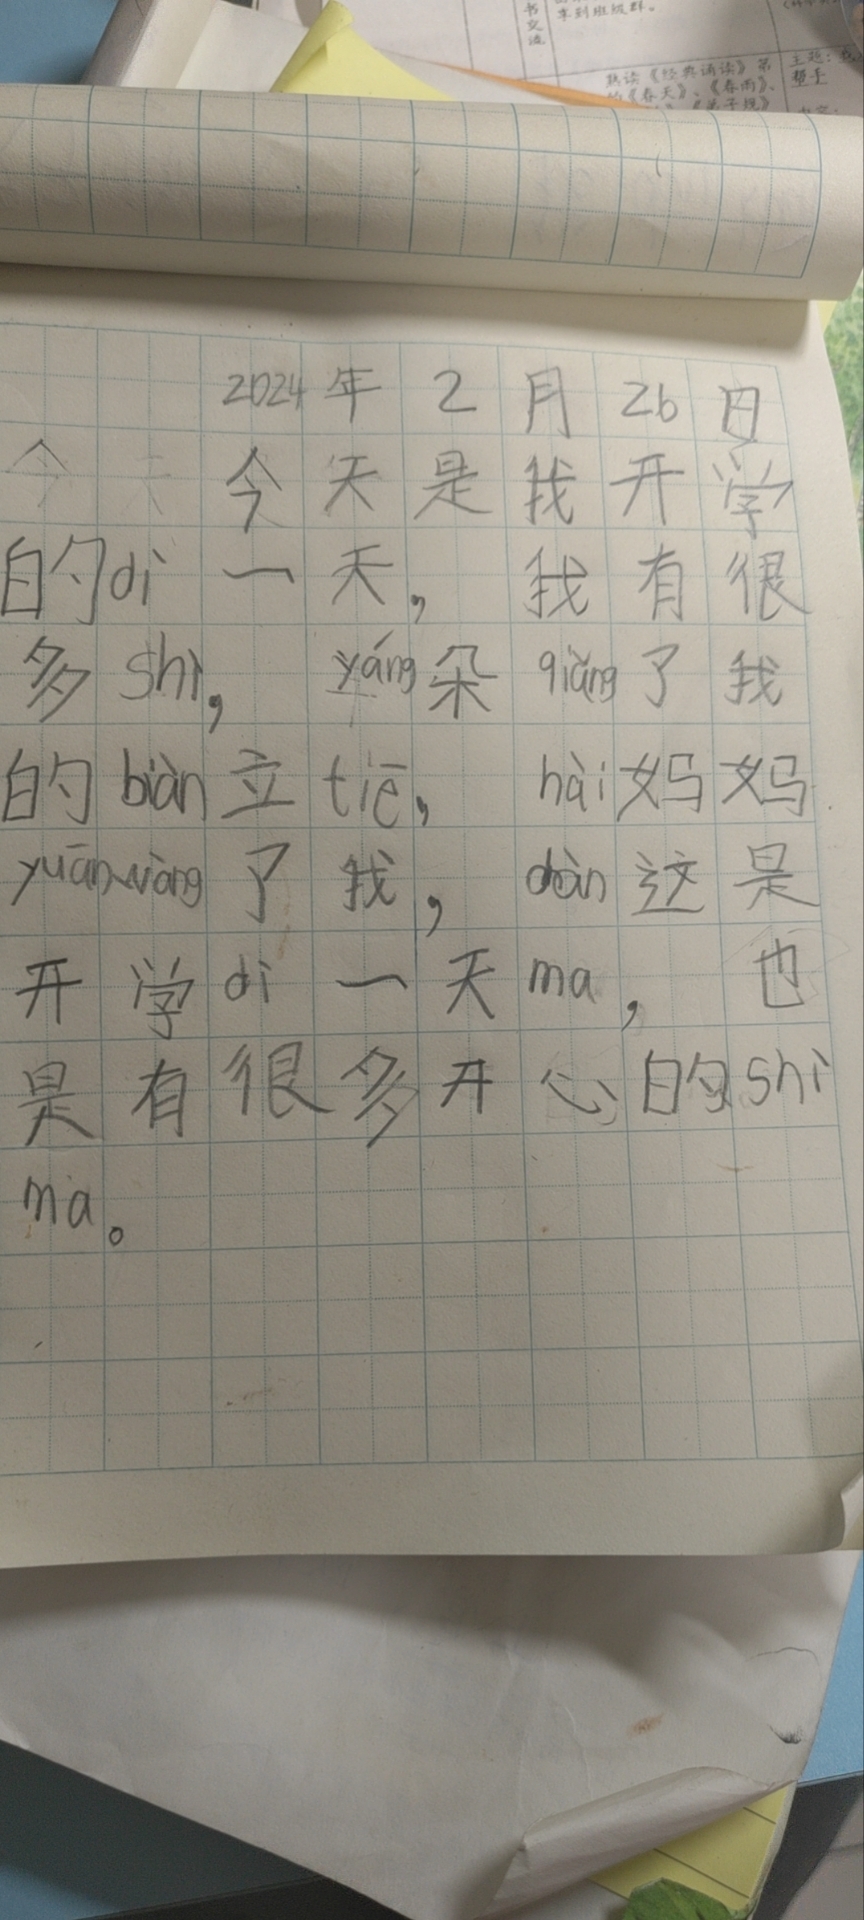 书交流
拿到班级群。
熟读《经典诵读》第
《春天》、《春雨》、
《弟子规》
主题:
帮手
2024年2月26日
今天今天是我开学
的dì一天,我有很
多shì,yáng朵qiǎng了我
的biàn立tiē,hài妈妈
yuānwàng了我,dàn这是
开学dì一天ma,也
是有很多开心的shì
ma。